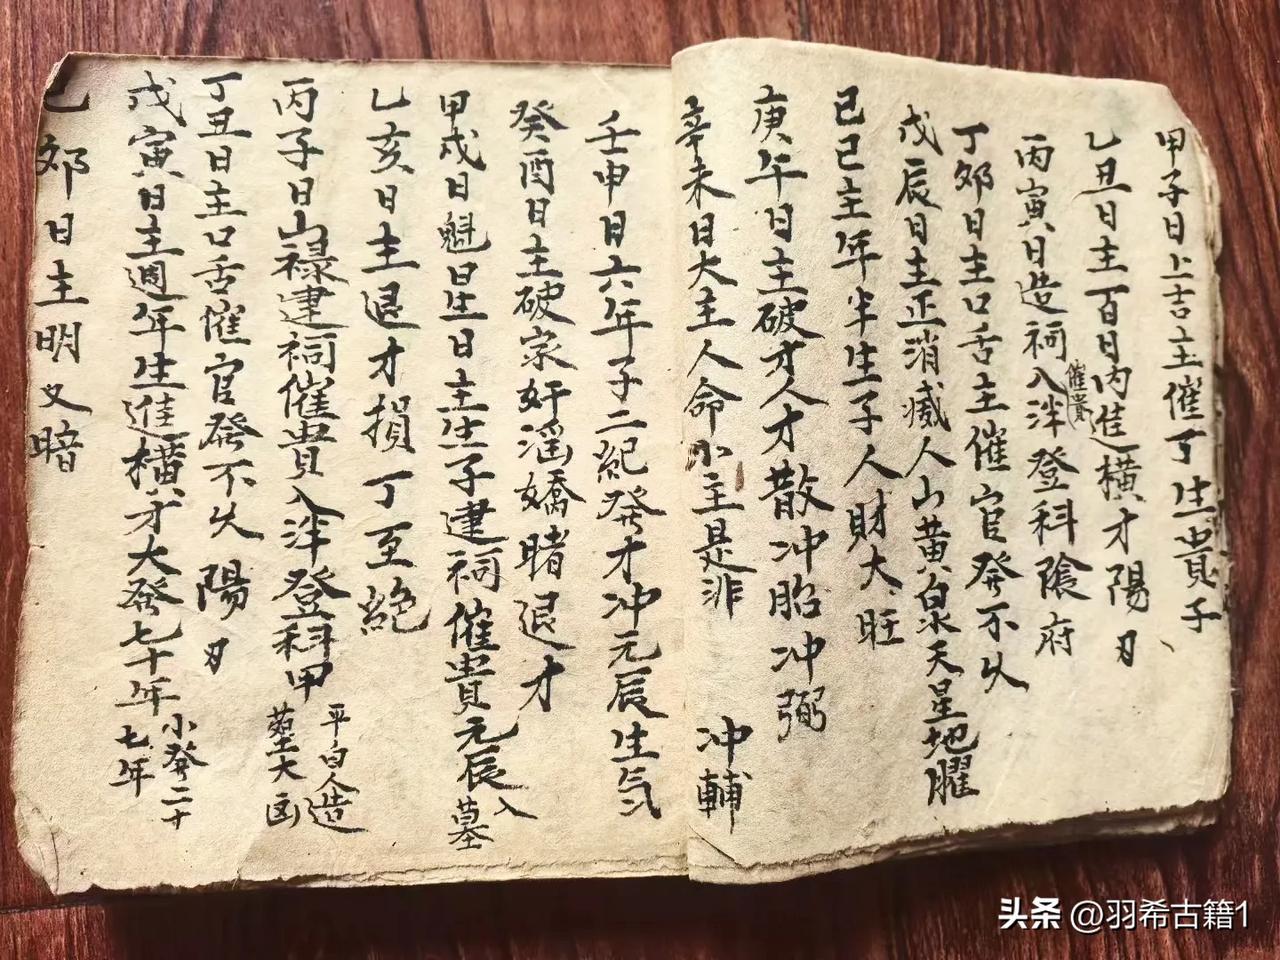 甲子日上吉主催丁生貴子
乙丑日主百日內進橫才陽刃
丙寅日造祠入泮登科陰府
催貴
丁卯日主口舌主催官發不久
戊辰日主正消滅人山黃泉天星地曜
己巳主年半生子人財大旺
庚午日主破才人才散冲胎冲弼
辛未日大主人命小主是非 冲輔
壬申日六年子二紀發才冲元辰生气
癸酉日主破家奸滛嬌睹退才
甲戌日魁日生日主生子建祠催貴元辰入墓
乙亥日主退才損丁至絕
丙子日山祿建祠催貴入泮登科甲
平白人造
塟大凶
丁丑日主口舌催官發不久 陽刃
戊寅日主週年生進橫才大發七十年
小發二十
七年
乙卯日主明又暗
头条 @羽希古籍1